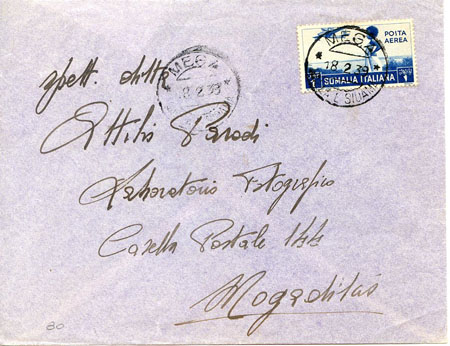 POSTA
AEREA
MEGA
18.2.39
SOMALIA ITALIANA
1 1
MEGA
18.2.39
Spett. ditta
Attilio Parodi
Laboratorio Fotografico
Casella Postale 144
Mogadiscio
80